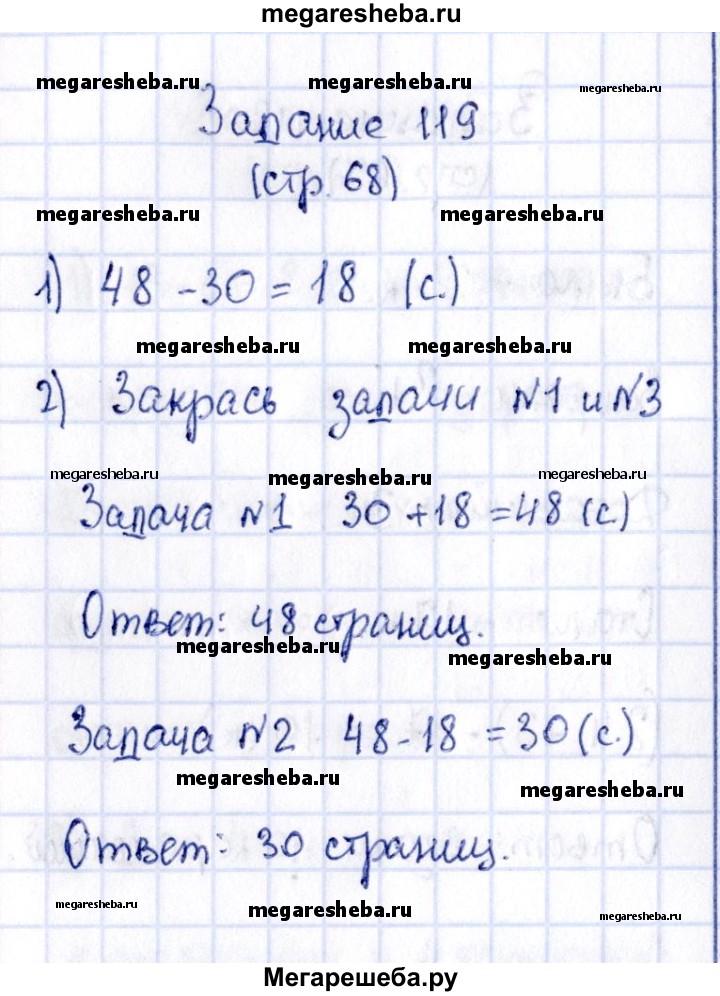 megaresheba.ru
megaresheba.ru megaresheba.ru megaresheba.ru
Задание 119
(стр. 68)
megaresheba.ru megaresheba.ru
1) 48 - 30 = 18 (с.)
megaresheba.ru megaresheba.ru
2) Закрась задачи №1 и №3
megaresheba.ru megaresheba.ru megaresheba.ru
Задача №1 30 + 18 = 48 (с.)
Ответ: 48 страниц.
megaresheba.ru megaresheba.ru
Задача №2 48 - 18 = 30 (с.)
megaresheba.ru megaresheba.ru
Ответ: 30 страниц.
megaresheba.ru megaresheba.ru megaresheba.ru
Мегарешеба.ру